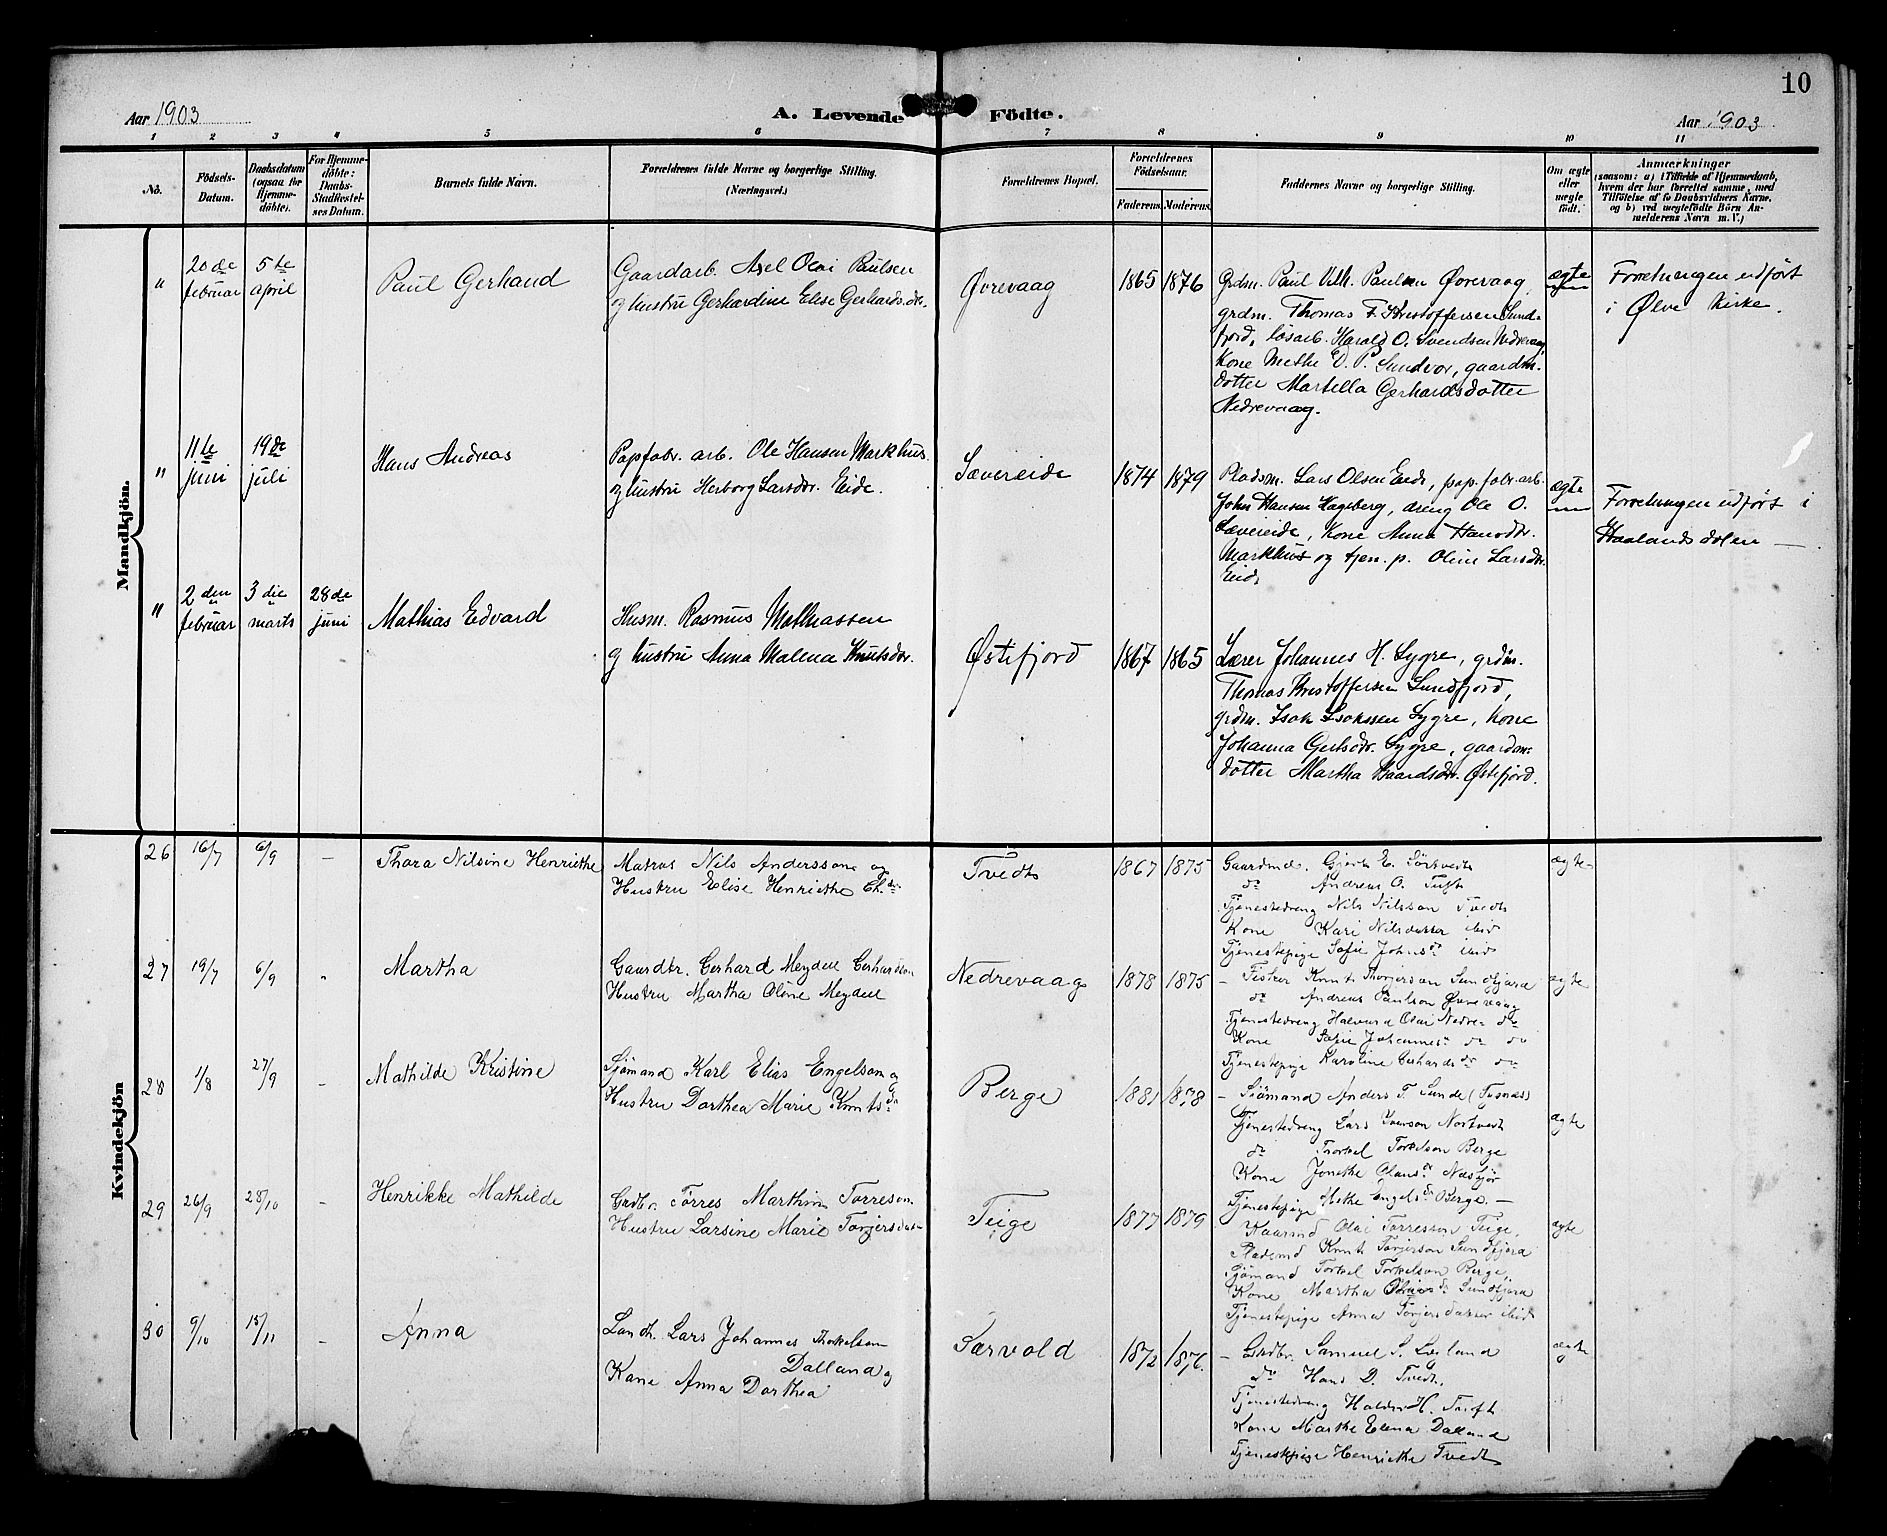 10
Aar 1903
A. Levende Födte.
Aar 1903
1 2 3 4 5 6 7 8 9 10 11
No.
Födsels-
Datum.
Daabsdatum
(ogsaa for
Hjemme-
döbte).
For Hjemme-
döbte:
Daabs-
Stadfæstel-
ses Datum.
Barnets fulde Navn.
Forældrenes fulde Navne og borgerlige Stilling.
(Næringsvei.)
Forældrenes Bopæl.
Forældrenes
Födselsaar.
Faderens. Moderens.
Faddernes Navne og borgerlige Stilling.
Om ægte
eller
uægte
födt.
Anmærkninger
(saasom: a) i Tilfælde af Hjemmedaab,
hvem der har forrettet samme, med
Tilföielse af to Daabsvidners Navne.
og b) ved uægtefödte Börn An-
melderens Navn m. V.)
Mandkjön.
" 20de februar
5te april
Paul Gerhard
Gaardarb. Axel Olai Paulsen
og hustru Gerhardine Elise Gerhardsdr.
Øvrevaag
1865 1876
Grdm. Paul Vilh. Paulsen Øvrevaag,
grdm. Thomas F. Kristoffersen Sund-
fjord, løsarb. Harald O. Svendsen Nedrevaag,
Kone Methe D. P. Sundvor, gaardm.
dotter Martella Gerhardsdotter
Nedrevaag.
ægte
Forretningen udført
i Ølve Kirke.
" 11te juni
19de juli
Hans Andreas
Papfabr. arb. Ole Hansen Markhus
og hustru Herborg Larsdr. Eide.
Sævereide
1874 1879
Pladsm. Lars Olsen Eide, pap. fabr. arb.
Johs Hansen Hageberg, dreng Ole O.
Sævereide, Kone Anna Hansdr.
Markhus og tjen. p. Oline Larsdr.
Eide
ægte
Forretningen udført i
Haalandsdalen —
" 2den februar
3die marts
28de juni
Mathias Edvard
Husm. Rasmus Mathiassen
og hustru Anna Malena Knutsdr.
Østifjord
1867 1865
Lærer Johannes H. Sygre, grdm.
Thomas Kristoffersen Sundfjord,
grdm. Isak Isakssen Sygre, Kone
Johanna Gertsdr. Sygre, gaardm-
dotter Martha Baardsdr. Østifjord.
Kvindekjön
26 16/7 6/9 —
Thora Nilsine Henriethe
Matros Nils Anderssone og
Hustru Elise Henriethe Th.dr
Tvedte
1867 1875
Gaardmd. Gjert E. Sørtvedt
do Andreas O. Tuft
Tjenestedreng Nils Nilsson Tvedte
Kone Kari Nilsdatter ibid
Tjenestepige Sofie Johns dr ibid
ægte
27 19/7 6/9 "
Martha
Gaardbr. Gerhard Meydell Gerhardson
Hustru Martha Oline Meydell
Nedrevaag
1878 1875
— Fisker Knut Thorjerson Sundfjord
do Andreas Paulson Øvrevaag
Tjenestedreng Halvard Olai Nedre- do
Kone Sofie Johannes dr do
Tjenestepige Karoline Gerhards dr do
ægte
28 1/8 27/9 —
Mathilde Kristine
Sjømand Karl Elias Engelson og
Hustru Dorthea Marie Knuts dr
Berge
1881 1878
— Sjømand Anders T. Sunde (Tysnæs)
Tjenestedreng Lars Iverson Nortvedt
do Torkel Torkelson Berge
Kone Jonethe Olaus dr Næsbjør
Tjenestepige Methe Engels dr Berge. —
ægte
29 26/9 28/10 —
Henrikke Mathilde
Grdbr. Tørres Marthin Tørreson
Hustru Larsine Marie Torjersdatr
Teige
1877 1879
Kaarmd Olai Tørresson Teige,
Pladsmd Knut Torjerson Sundfjord
Sjømand Torkel Torkelson Berge,
Kone Martha Olines dr Sundfjord
Tjenestepige Anna Torjersdatter ibid
ægte
30 9/10 15/11 —
Anna
Landh. Lars Johannes Thorkelson
Dalland og
Kone Anna Dorthea
Særvold
1872 1876.
— Grdbr. Samuel S. Lieland
do Hans D. Tvedt,
Tjenestedreng Haldor H. Tuft
Kone Marthe Elena Dalland
Tjenestepige Henriethe Tvedt
ægte